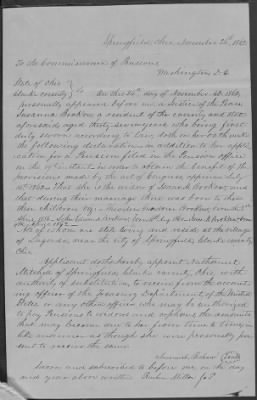 Springfield Ohio November 24th, 1862
To the Commissioner of Pensions
Washington D.C.
State of Ohio
Clark County } ss. On this 24th day of November AD 1862,
personally appeared before me a Justice of the Peace
Susanna Brokaw a resident of the county and State
aforesaid, aged thirty seven years who being first
duly sworn according to law, doth on her oath make
the following declaration in addition to her appli
cation for a Pension filed in the Pension office
on the in order to obtain the benefit of the
provisions made by the act of Congress approved July
14th 1862: that she is the widow of Brokaw, and
that during their marriage there was born to them
children Viz:
John Edward Brokaw
All of whom are still living and reside at the village
of Lagonda, near the city of Springfield, Clark County
Ohio
Applicant doth hereby appoint Nathaniel
Mitchel of Springfield, Clark County, Ohio, with
authority of substitution, to receive from the account
ing officer of the Treasury Department of the United
States or any other officer who may be authorized
to pay Pensions to widows and orphans the amounts
that may become due to her from time to time, in
like manner as though she were personally pre
sent to receive the same.
Susannah Brokaw (seal)
Sworn and subscribed to before me on the day
and year above written Reuben Miller J.P.